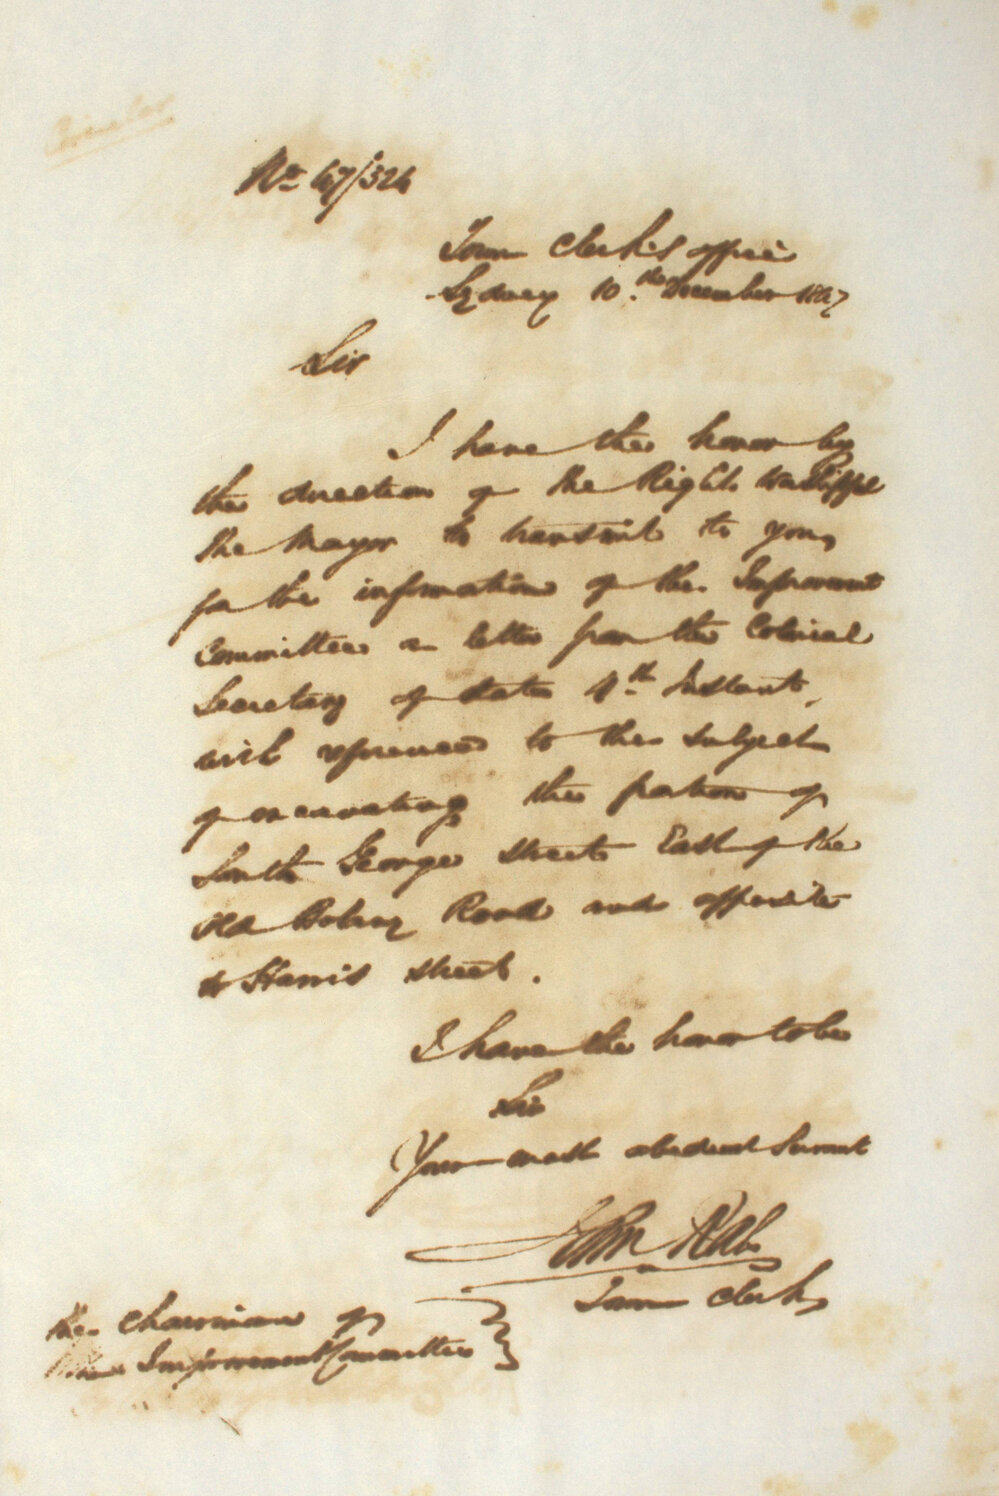 No 47/324
Town Clerk's office
Sydney 10th December 1847
Sir
I have the honor by
the direction of the Right Worshipful
the Mayor to transmit to you,
for the information of the Improvement
Committee a letter from the Colonial
Secretary of date 4th Instant,
with reference to the subject
of excavating the portion of
South George street East of the
old Botany Road and opposite
to Harris street.
I have the honor to be
Sir
Your most obedient Servant
John
Town Clerk
The Chairman of
the Improvement Committee